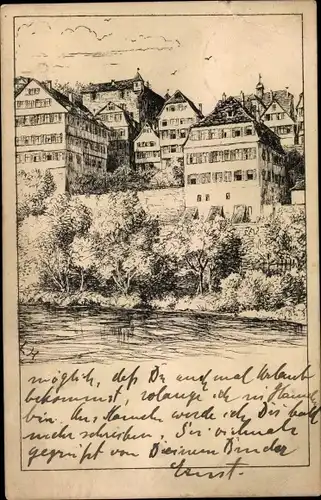 möglich, daß Du auch mal Urlaub
bekommst, solange ich in Hanau
bin. Aus Hanau werde ich Dir bald
mehr schreiben. Sei vielmals
gegrüßt von Deinem Bruder
Ernst.